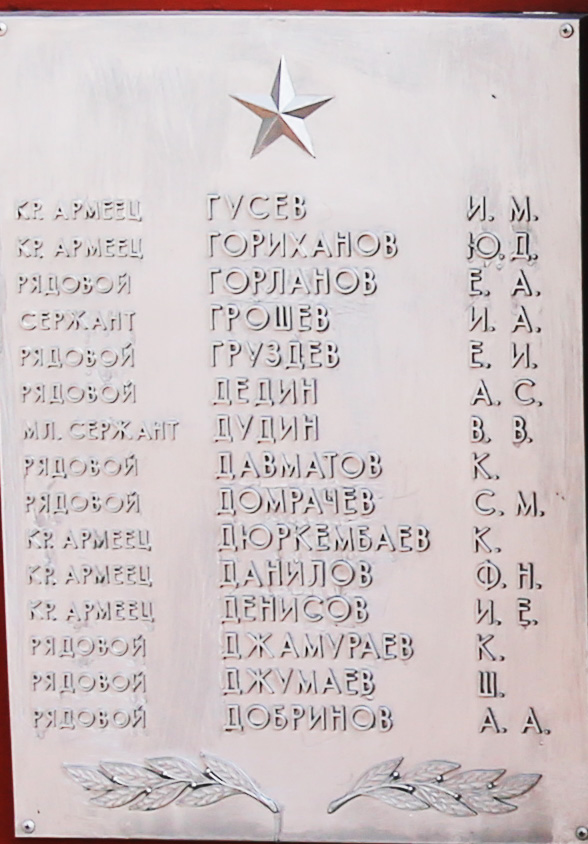 КР. АРМЕЕЦ ГУСЕВ И. М.
КР. АРМЕЕЦ ГОРИХАНОВ Ю. Д.
РЯДОВОЙ ГОРЛАНОВ Е. А.
СЕРЖАНТ ГРОШЕВ И. А.
РЯДОВОЙ ГРУЗДЕВ Е. И.
РЯДОВОЙ ДЕДИН А. С.
МЛ. СЕРЖАНТ ДУДИН В. В.
РЯДОВОЙ ДАВМАТОВ К.
РЯДОВОЙ ДОМРАЧЕВ С. М.
КР. АРМЕЕЦ ДЮРКЕМБАЕВ К.
КР. АРМЕЕЦ ДАНИЛОВ Ф. Н.
КР. АРМЕЕЦ ДЕНИСОВ И. Е.
РЯДОВОЙ ДЖАМУРАЕВ К.
РЯДОВОЙ ДЖУМАЕВ Ш.
РЯДОВОЙ ДОБРИНОВ А. А.